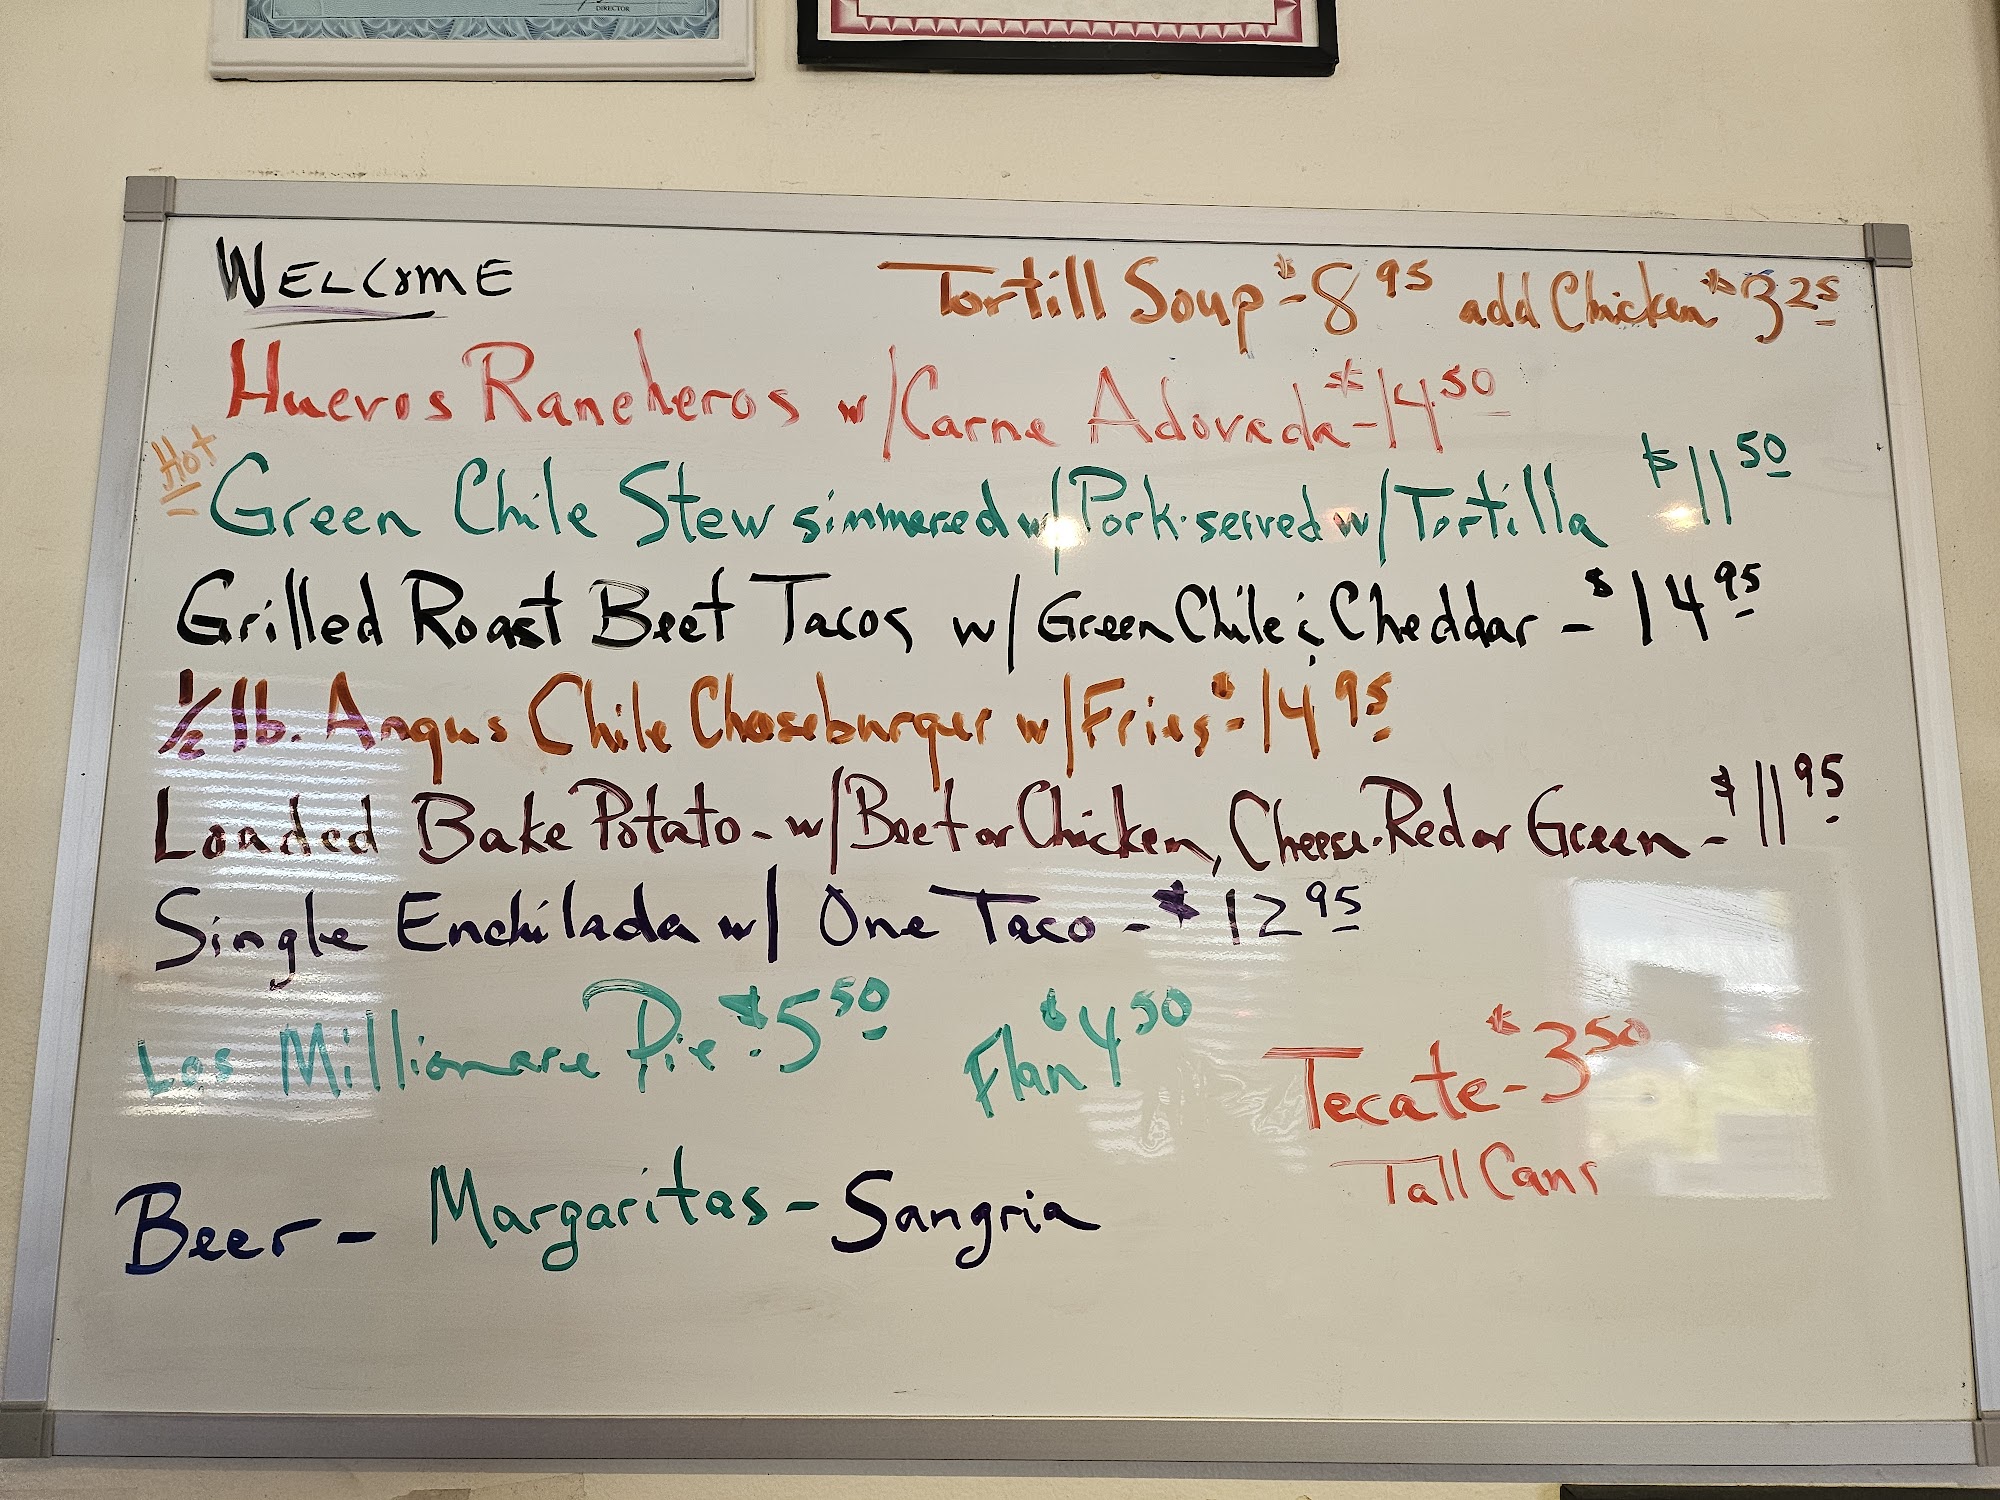 DIRECTOR
WELCOME
Tortill Soup - $8.95 add Chicken $3.25
Huevos Rancheros w/Carne Adovada - $14.50
Hot
Green Chile Stew simmered w/Pork-served w/Tortilla $11.50
Grilled Roast Beef Tacos w/Green Chile & Cheddar - $14.95
1/2 lb. Angus Chile Cheeseburger w/Fries - $14.95
Loaded Bake Potato - w/Beef or Chicken, Cheese-Red or Green - $11.95
Single Enchilada w/ One Taco - $12.95
Los Millionare Pie - $5.50 Flan $4.50
Tecate - $3.50
Tall Cans
Beer - Margaritas - Sangria